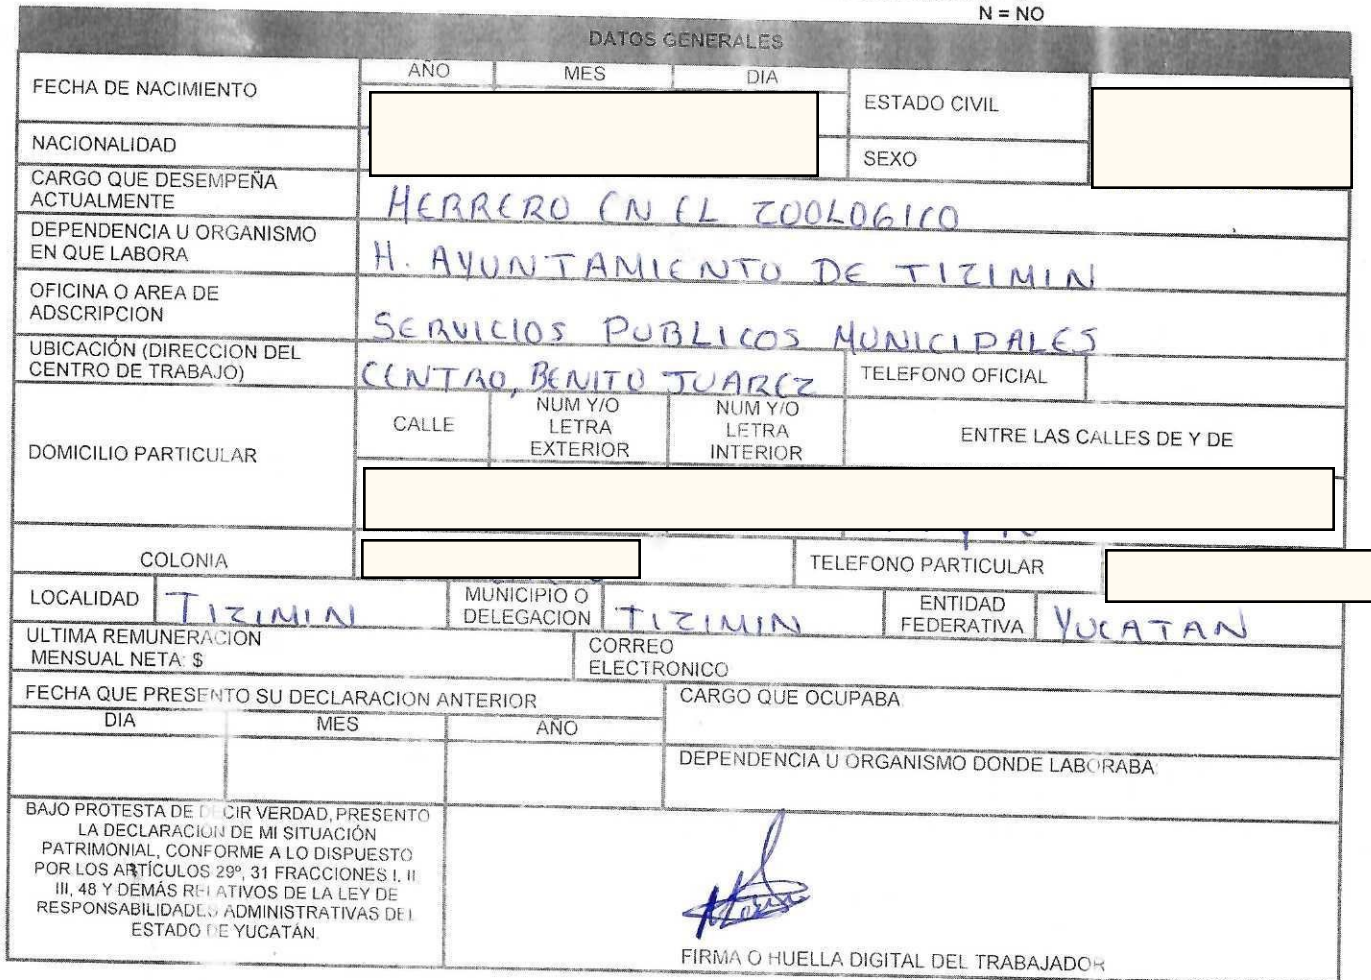 N = NO
DATOS GENERALES
FECHA DE NACIMIENTO
AÑO MES DIA
ESTADO CIVIL
NACIONALIDAD
SEXO
CARGO QUE DESEMPEÑA
ACTUALMENTE
HERRERO EN EL ZOOLOGICO
DEPENDENCIA U ORGANISMO
EN QUE LABORA
H. AYUNTAMIENTO DE TIZIMIN
OFICINA O AREA DE
ADSCRIPCION
SERVICIOS PUBLICOS MUNICIPALES
UBICACIÓN (DIRECCION DEL
CENTRO DE TRABAJO)
CENTRO, BENITO JUAREZ
TELEFONO OFICIAL
DOMICILIO PARTICULAR
CALLE
NUM Y/O
LETRA
EXTERIOR
NUM Y/O
LETRA
INTERIOR
ENTRE LAS CALLES DE Y DE
COLONIA
TELEFONO PARTICULAR
LOCALIDAD
TIZIMIN
MUNICIPIO O
DELEGACION
TIZIMIN
ENTIDAD
FEDERATIVA
YUCATAN
ULTIMA REMUNERACION
MENSUAL NETA: $
CORREO
ELECTRONICO
FECHA QUE PRESENTO SU DECLARACION ANTERIOR
DIA MES AÑO
CARGO QUE OCUPABA
DEPENDENCIA U ORGANISMO DONDE LABORABA:
BAJO PROTESTA DE DECIR VERDAD, PRESENTO
LA DECLARACIÓN DE MI SITUACIÓN
PATRIMONIAL, CONFORME A LO DISPUESTO
POR LOS ARTÍCULOS 29º, 31 FRACCIONES I, II
III, 48 Y DEMÁS RELATIVOS DE LA LEY DE
RESPONSABILIDADES ADMINISTRATIVAS DEL
ESTADO DE YUCATÁN.
FIRMA O HUELLA DIGITAL DEL TRABAJADOR